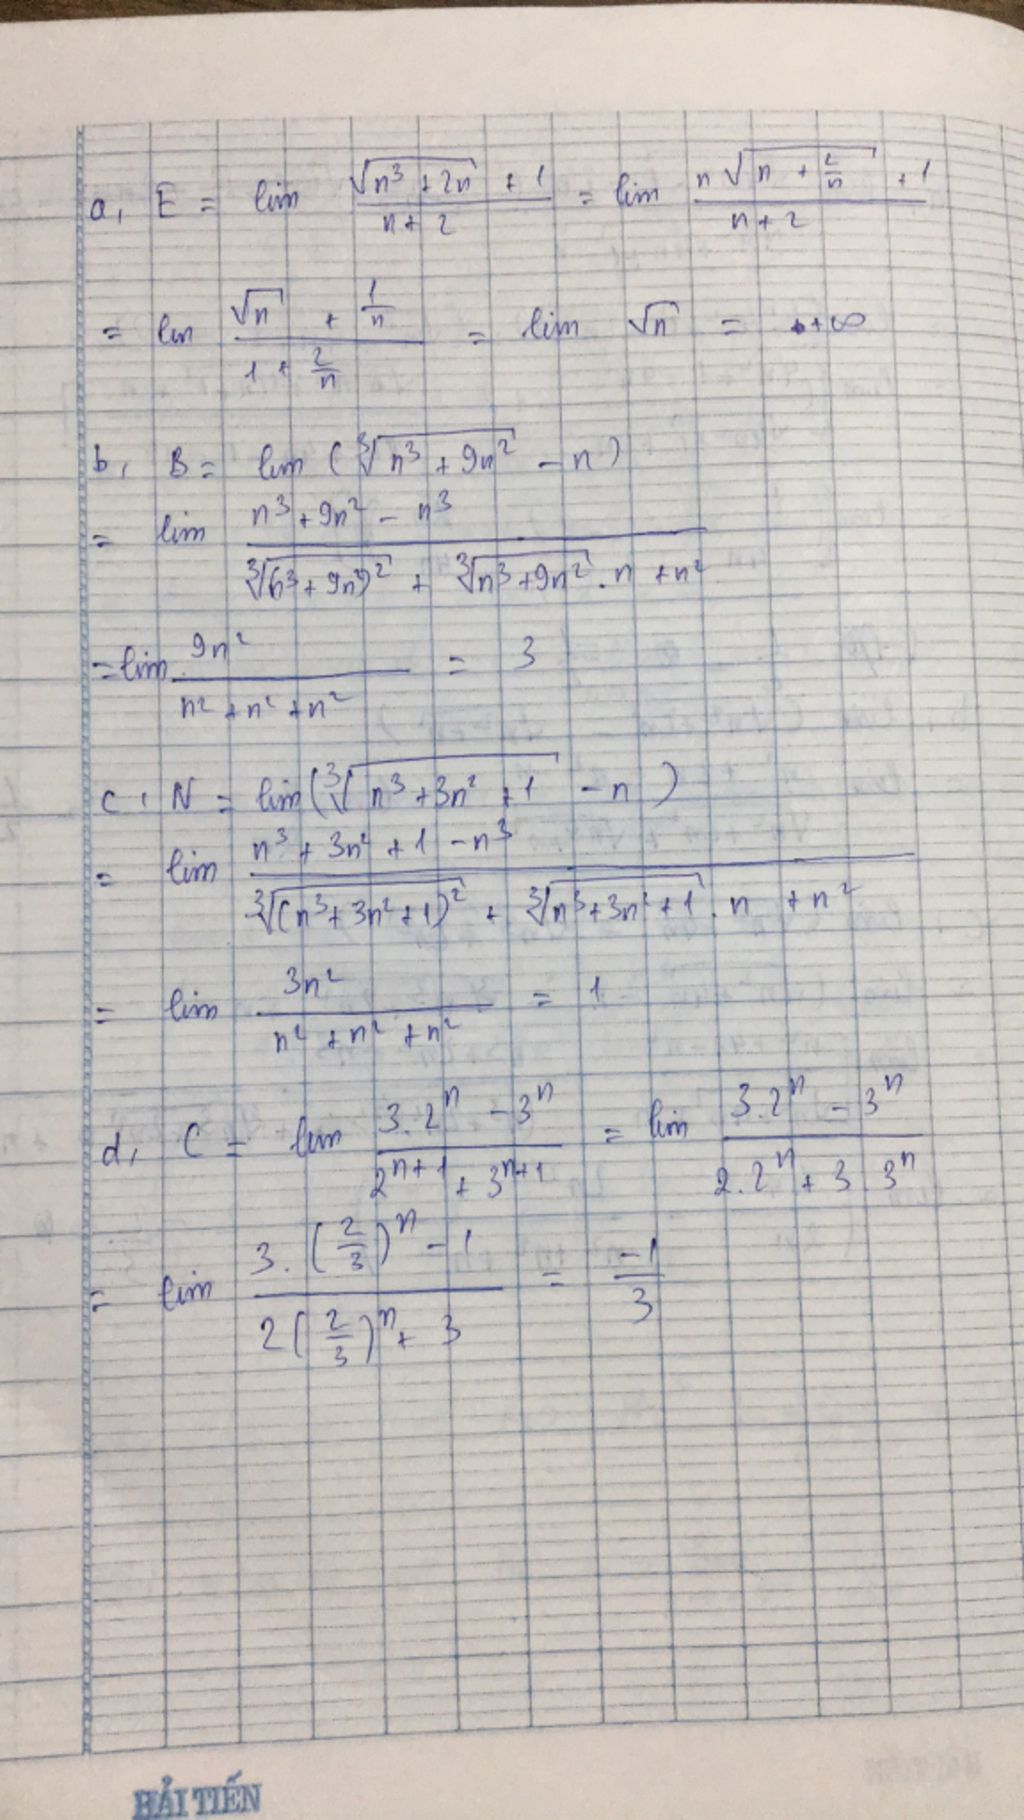 a, E = lim \frac{\sqrt{n^3 + 2n} + 1}{n + 2} = lim \frac{n\sqrt{n + \frac{2}{n}} + 1}{n + 2}
= lim \frac{\sqrt{n} + \frac{1}{n}}{1 + \frac{2}{n}} = lim \sqrt{n} = +∞
b, B = lim (\sqrt[3]{n^3 + 9n^2} - n)
= lim \frac{n^3 + 9n^2 - n^3}{\sqrt[3]{(n^3 + 9n^2)^2} + \sqrt[3]{n^3 + 9n^2} . n + n^2}
= lim \frac{9n^2}{n^2 + n^2 + n^2} = 3
c, N = lim (\sqrt[3]{n^3 + 3n^2 + 1} - n)
= lim \frac{n^3 + 3n^2 + 1 - n^3}{\sqrt[3]{(n^3 + 3n^2 + 1)^2} + \sqrt[3]{n^3 + 3n^2 + 1} . n + n^2}
= lim \frac{3n^2}{n^2 + n^2 + n^2} = 1
d, C = lim \frac{3.2^n - 3^n}{2^{n+1} + 3^{n+1}} = lim \frac{3.2^n - 3^n}{2.2^n + 3.3^n}
= lim \frac{3.(\frac{2}{3})^n - 1}{2(\frac{2}{3})^n + 3} = \frac{-1}{3}
HẢI TIẾN